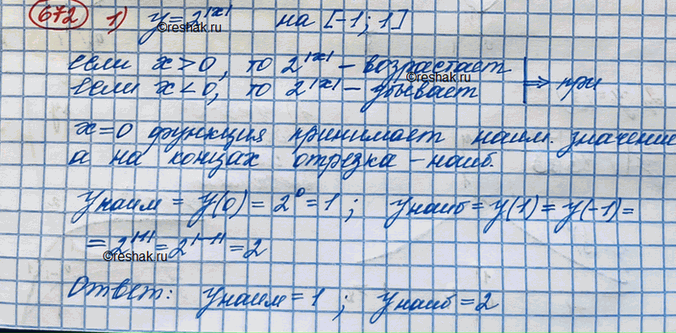 672 1) y = 2^|x| на [-1; 1]
©reshak.ru
если x > 0, то 2^|x| - возрастает
если x < 0, то 2^|x| - убывает ⇒ при
©reshak.ru
x=0 функция принимает наим. значение
а на концах отрезка - наиб.
y наим = y(0) = 2^0 = 1 ; y наиб = y(1) = y(-1) =
= 2^|1| = 2^|-1| = 2
©reshak.ru
Ответ: y наим = 1 ; y наиб = 2